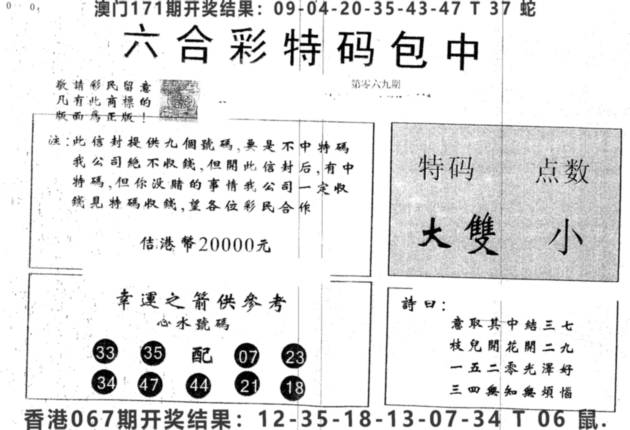 澳门171期开奖结果：09-04-20-35-43-47 T 37 蛇
六合彩特码包中
敬請彩民留意
凡有此商標的
版面爲正版！
第零六九期
注：此信封提供九個號碼，要是不中特碼
我公司絕不收錢，但開此信封后，有中
特碼，但你没賭的事情我公司一定收
錢見特碼收錢，望各位彩民合作
佶港幣20000元
特码 点数
大雙 小
幸運之箭供參考
心水號碼
33 35 配 07 23
34 47 44 21 18
詩曰：
意取其中結三七
枝兒開花開二九
一五二零光澤好
三四無知無煩惱
香港067期开奖结果：12-35-18-13-07-34 T 06 鼠.